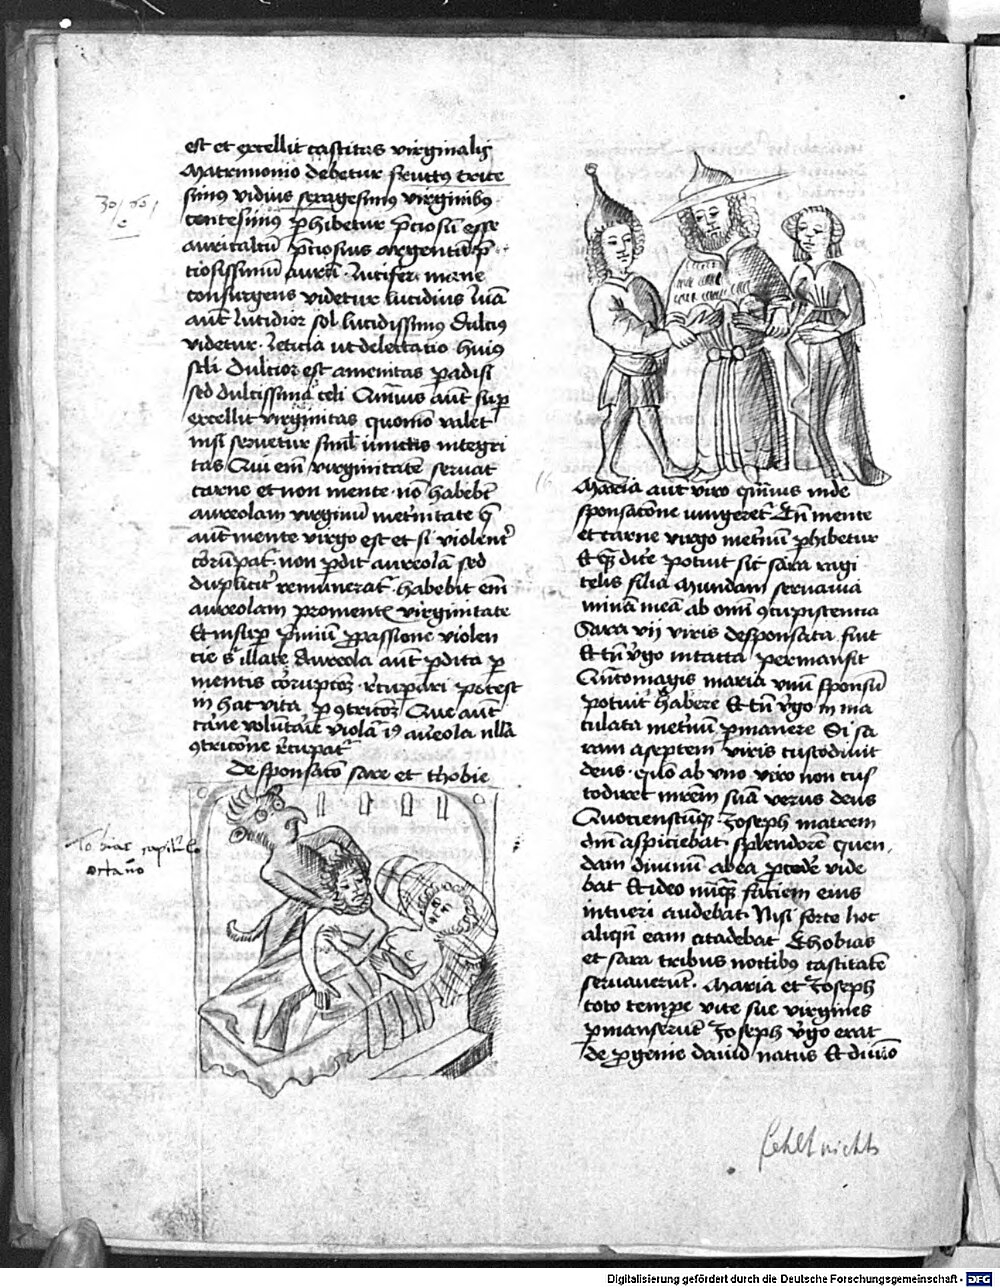 est et excellit castitas virginalis
Matrimonio debetur fructus trice
simus viduis sexagesimus virginibꝰ
centesimus ꝑhibetur p̄ciosū esse
auricalcū p̄ciosius argentū p̄
ciosissimū aurū · Lucifer mane
consurgens videtur lucidus Luā
aūt lucidior sol lucidissimus dulcis
videtur · leticia ut delectatio huiꝰ
scli dulcior est amenitas padisi
sed dulcissima celi Quāuis aūt suꝑ
excellit virginitas quoniō valet
nisi servetur siml̄ mentis integri
tas Qui em̄ virginitatē servat
carne et non mente · nō habebt
aureolam virginū
aūt mente virgo est et si violent̄
corūpat̄ · non ꝑdit aureolā sed
duplicit̄ remunerat̄ · habebit em̄
aureolam pro mentꝭ virginitate
Et insuꝑ p̄miū ꝓ passione violen
cie sͥ illate Aureola aūt ꝑdita ꝑ
mentis corrupcōꝫ recuꝑari potest
in hac vita ꝑ ꝯtricōꝫ Que aūt
carne voluntarie violat̄ aureola nulla
ꝯtricōne recuꝑat̄
De sponsacōe sare et thobie
30 / 60 /
c
Tobias capitulo
octavo
Maria aūt viro quāuis inde
sponsacōne iungeret̄ Tn̄ mente
et carne virgo ꝑhibetur
Et qd̄ dice potuit sit sara ragi
elis filia Mundam servavi a
nimā meā ab om̄i ꝯcupiscencia
Sara vii viris desponsata fuit
Et tn̄ v̄go intacta permansit
Qn̄tomagis maria unū sponsū
potuit habere Et tn̄ v̄go in ma
culata ꝑmanere Si sa
ram a septem viris custodiuit
deus · quō ab uno viro non cus
todiret mrēm suā verus deus
Quociensc̄ꝫ Joseph matrem
dn̄i aspiciebat · splendorē quen
dam diuinū ab ea ꝓcedē vide
bat Et ideo nūqꝫ faciem eius
intueri audebat · Nisi forte hoc
aliqn̄ eam citadebat Thobias
et sara tribus noctibꝰ castitatē
servaverūt · Maria et Joseph
toto tempe vite sue virgines
ꝑmanserūt Joseph v̄go erat
de ꝓgenie dauid natus Et diuio
fehlt nichts
Digitalisierung gefördert durch die Deutsche Forschungsgemeinschaft - DFG